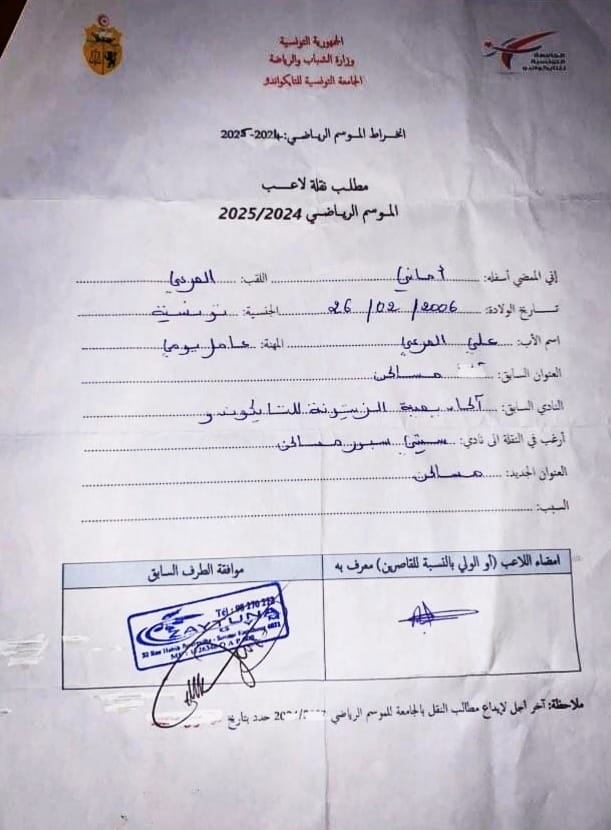 الجمهورية التونسية
وزارة الشباب والرياضة
الجامعة التونسية للتايكواندو
الجامعة
التونسية
للتايكواندو
انخراط الموسم الرياضي: 2024-2025
مطلب نقلة لاعب
الموسم الرياضي 2025/2024
إني الممضي أسفله: أماني اللقب: المرعي
تاريخ الولادة: 26/02/2006 الجنسية: تونسية
اسم الأب: علي المرعي المهنة: عامل يومي
العنوان السابق: مساكن
النادي السابق: أكاديمية الزيتونة للتايكوندو
أرغب في النقلة الى نادي: سيتي سبور مساكن
العنوان الجديد: مساكن
السبب:
امضاء اللاعب (أو الولي بالنسبة للقاصرين) معرف به
موافقة الطرف السابق
Tél: 98 270 273
ZAYTUNA
32 Rue Habib
ملاحظة: آخر أجل لإيداع مطالب النقل بالجامعة للموسم الرياضي حدد بتاريخ